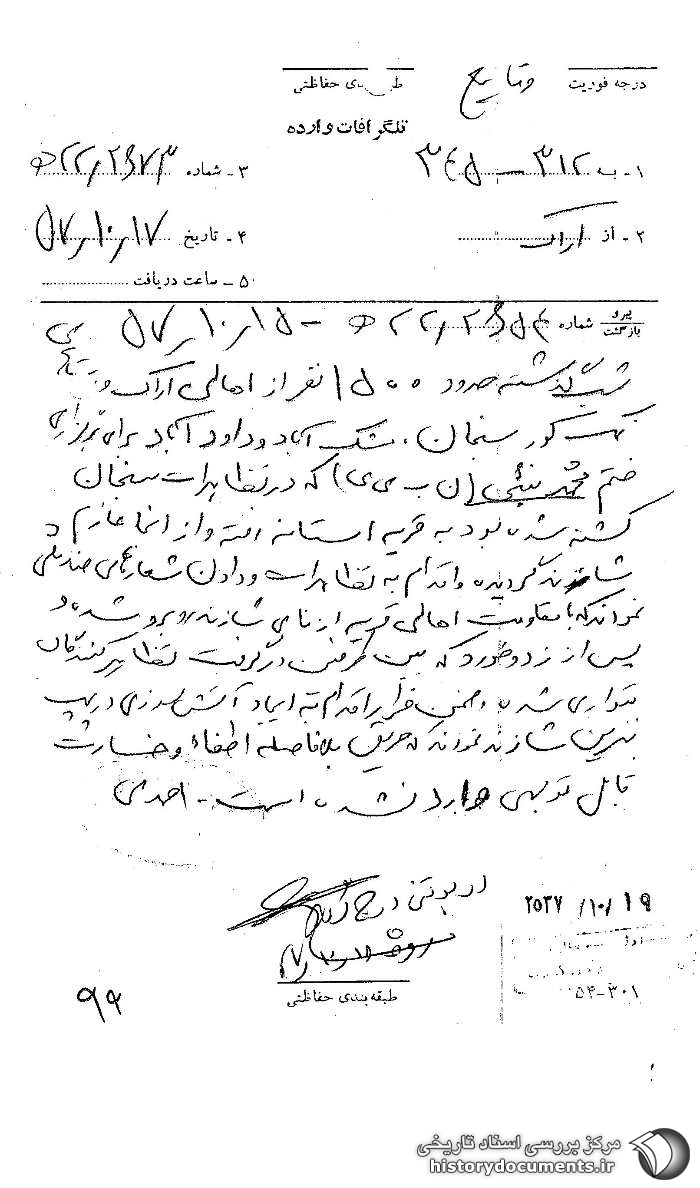 درجه فوریت وقایع
طبقه‌بندی حفاظتی
تلگرافات وارده
۱- به ۳۱۲ - ۳۴۵
۳- شماره
۲- از اراک
۴- تاریخ ۵۷٫۱۰٫۱۷
۵- ساعت دریافت
پیرو بازگشت شماره - ۵۷٫۱۰٫۱۵
شب گذشته حدود ۱۵۰۰ نفر از اهالی اراک و
سنجان، شک آباد و داود آباد برای برگزاری
ختم محمد (ن ب می‌ی) که در تظاهرات سنجان
کشته شده بود به قریه استانه رفته و از آنجا عازم
شازند گردیده و اقدام به تظاهرات و دادن شعارهای ضد ملی
نمودند که با مقاومت اهالی قریه شازند روبرو شده و
پس از زد و خورد که بین طرفین درگرفت تظاهر کنندگان
متواری شده و ضمن فرار اقدام به ایجاد آتش سوزی در پمپ
بنزین شازند نمودند که حریق بلافاصله اطفاء و خسارت
قابل توجهی وارد نشده است - احمدی
در بولتن درج
۲۵۳۷/۱۰/۱۹
۵۴-۳۰۱
طبقه بندی حفاظتی
۹۹
مرکز بررسی اسناد تاریخی
historydocuments.ir